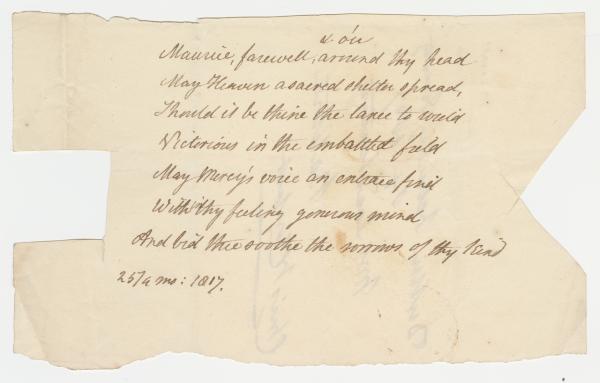 & o'er
Maurice, farewell, around thy head
May Heaven a sacred shelter spread,
Should it be thine the lance to wield
Victorious in the embattled field
May Mercy's voice an entrace find
With thy feeling generous mind
And bid thee soothe the sorrows of thy kind
25/4 mo: 1817.